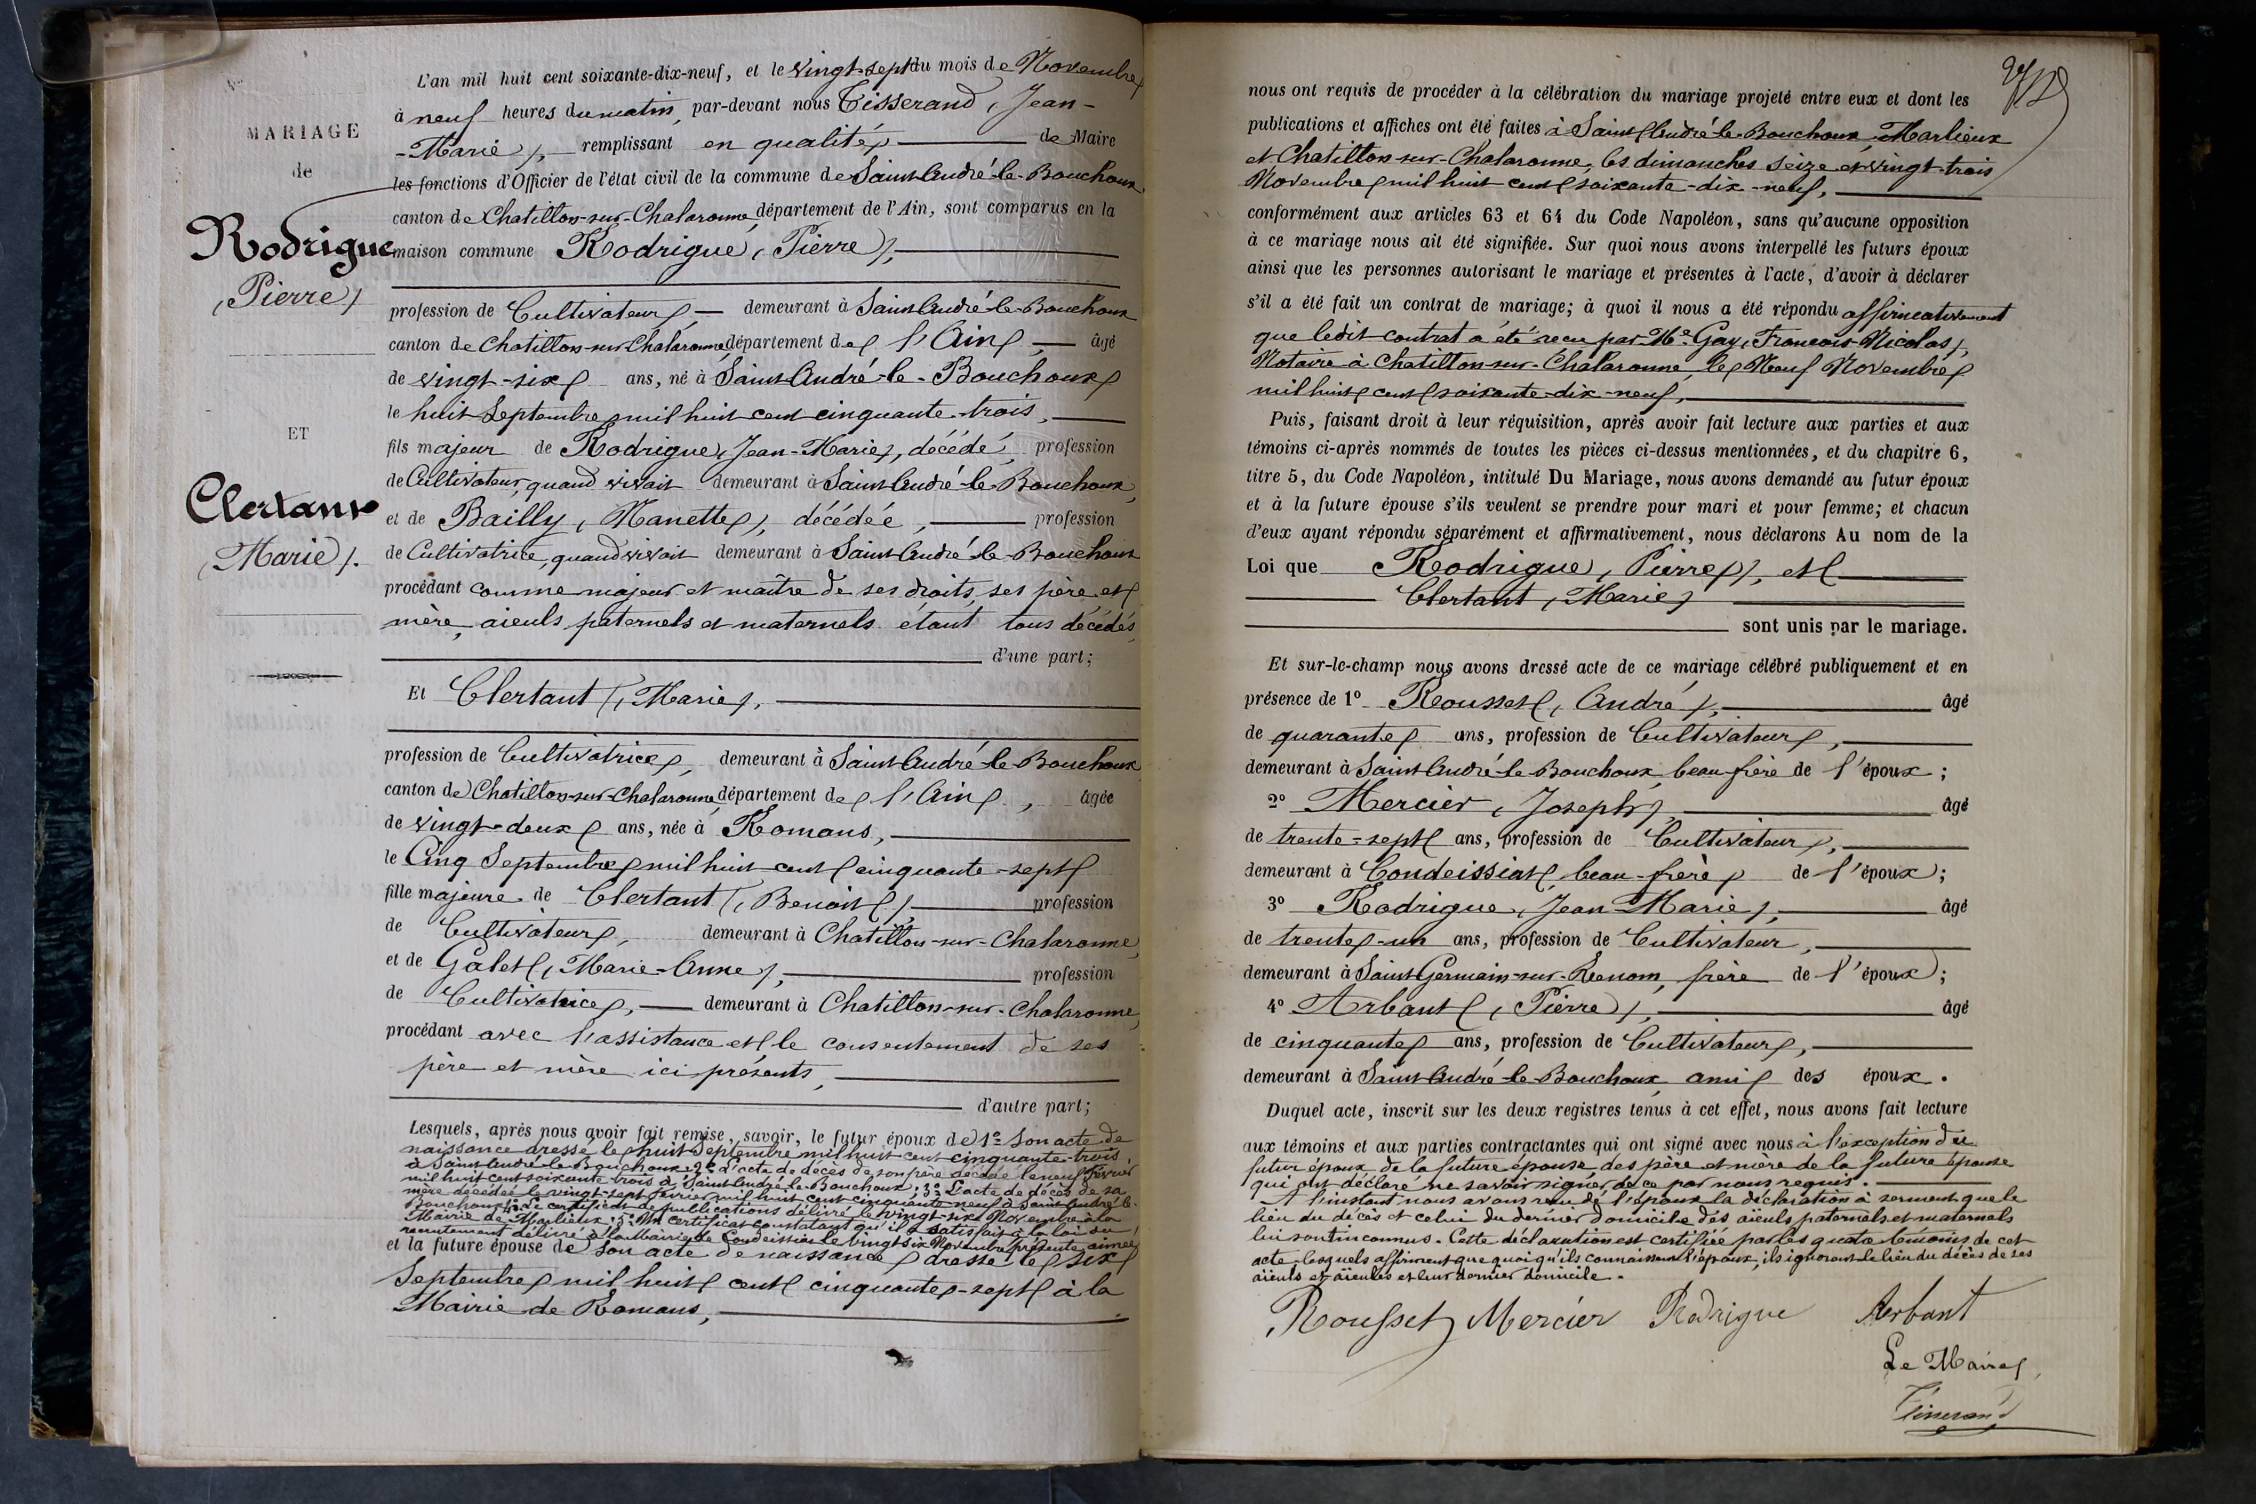 MARIAGE
de
Rodrigue
(Pierre)
ET
Clertant
(Marie).
L'an mil huit cent soixante-dix-neuf, et le vingt-sept du mois de Novembre
à neuf heures du matin, par-devant nous Tisserand, Jean-
-Marie), remplissant en qualité de Maire
les fonctions d'Officier de l'état civil de la commune de Saint André-le-Bouchoux
canton de Chatillon-sur-Chalaronne, département de l'Ain, sont comparus en la
maison commune Rodrigue, (Pierre),
profession de Cultivateur, demeurant à Saint André-le-Bouchoux
canton de Chatillon-sur-Chalaronne, département de l'Ain, âgé
de vingt-six ans, né à Saint André-le-Bouchoux
le huit Septembre mil huit cent cinquante-trois,
fils majeur de Rodrigue, Jean-Marie), décédé, profession
de Cultivateur, quand vivait demeurant à Saint André-le-Bouchoux,
et de Bailly, (Nanette), décédée, profession
de Cultivatrice, quand vivait demeurant à Saint André-le-Bouchoux
procédant comme majeur et maître de ses droits, ses père et
mère, aieuls paternels et maternels étant tous décédés,
d'une part;
Et Clertant (, Marie),
profession de Cultivatrice, demeurant à Saint André-le-Bouchoux
canton de Chatillon-sur-Chalaronne, département de l'Ain, âgée
de vingt-deux ans, née à Romans,
le Cinq Septembre mil huit cent cinquante-sept
fille majeure de Clertant (, Benoit),
profession
de Cultivateur, demeurant à Chatillon-sur-Chalaronne,
et de Galet (, Marie-Anne), profession
de Cultivatrice, demeurant à Chatillon-sur-Chalaronne,
procédant avec l'assistance et le consentement de ses
père et mère ici présents,
d'autre part;
Lesquels, après nous avoir fait remise, savoir, le futur époux de 1º Son acte de
naissance dressé le huit Septembre mil huit cent cinquante-trois,
à Saint André-le-Bouchoux. 2º L'acte de décès de son père décédé le neuf Février
mil huit cent soixante trois à Saint André-le-Bouchoux. 3º L'acte de décès de sa
mère décédée le vingt-sept février mil huit cent cinquante neuf à Saint André-le-
Bouchoux. 4º Le certificat de publications délivré le vingt-six Novembre à la
Mairie de Marlieux. 5º Un certificat constatant qu'il a satisfait à la loi du
recrutement délivré à la Mairie de Condeissiat le vingt six Novembre présente année
et la future épouse de Son acte de naissance dressé le six
Septembre mil huit cent cinquante-sept à la
Mairie de Romans,
nous ont requis de procéder à la célébration du mariage projeté entre eux et dont les
publications et affiches ont été faites à Saint André-le-Bouchoux, Marlieux
et Chatillon-sur-Chalaronne, les dimanches seize et vingt-trois
Novembre mil huit cent soixante-dix-neuf,
conformément aux articles 63 et 64 du Code Napoléon, sans qu'aucune opposition
à ce mariage nous ait été signifiée. Sur quoi nous avons interpellé les futurs époux
ainsi que les personnes autorisant le mariage et présentes à l'acte, d'avoir à déclarer
s'il a été fait un contrat de mariage; à quoi il nous a été répondu affirmativement
que ledit contrat a été reçu par Me Gay, François-Nicolas),
Notaire à Chatillon-sur-Chalaronne, le Neuf Novembre
mil huit cent soixante-dix-neuf,
Puis, faisant droit à leur réquisition, après avoir fait lecture aux parties et aux
témoins ci-après nommés de toutes les pièces ci-dessus mentionnées, et du chapitre 6,
titre 5, du Code Napoléon, intitulé Du Mariage, nous avons demandé au futur époux
et à la future épouse s'ils veulent se prendre pour mari et pour femme; et chacun
d'eux ayant répondu séparément et affirmativement, nous déclarons Au nom de la
Loi que Rodrigue, (Pierre), et
Clertant, (Marie)
sont unis par le mariage.
Et sur-le-champ nous avons dressé acte de ce mariage célébré publiquement et en
présence de 1º Rousset (, André), âgé
de quarante ans, profession de Cultivateur,
demeurant à Saint André-le-Bouchoux, beau-frère de l'époux;
2º Mercier, (Joseph), âgé
de trente-sept ans, profession de Cultivateur,
demeurant à Condeissiat, beau-frère de l'époux;
3º Rodrigue, (Jean-Marie), âgé
de trente-un ans, profession de Cultivateur,
demeurant à Saint Germain-sur-Renom, frère de l'époux;
4º Arbant (, Pierre), âgé
de cinquante ans, profession de Cultivateur,
demeurant à Saint André-le-Bouchoux, ami des époux.
Duquel acte, inscrit sur les deux registres tenus à cet effet, nous avons fait lecture
aux témoins et aux parties contractantes qui ont signé avec nous à l'exception du
futur époux de la future épouse des père et mère de la future épouse
qui ont déclaré ne savoir signer de ce par nous requis.
A l'instant nous avons reçu de l'époux la déclaration à serment que le
lieu du décès et celui du dernier domicile des aïeuls paternels et maternels
lui sont inconnus. Cette déclaration est certifiée par les quatre témoins de cet
acte lesquels affirment que quoiqu'ils connaissent l'époux, ils ignorent le lieu du décès de ses
aïeuls et aïeules et leur dernier domicile.
Rousset Mercier Rodrigue Arbant
Le Maire,
Tisserand